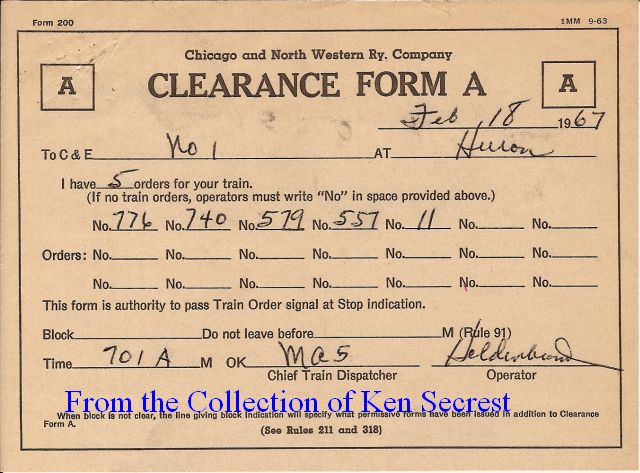 Form 200 1MM 9-63
Chicago and North Western Ry. Company
A CLEARANCE FORM A A
Feb 18 1967
To C & E No 1 AT Huron
I have 5 orders for your train.
(If no train orders, operators must write "No" in space provided above.)
No. 776 No. 740 No. 579 No. 557 No. 11 No. No.
Orders: No. No. No. No. No. No. No.
No. No. No. No. No. No. No.
This form is authority to pass Train Order signal at Stop indication.
Block Do not leave before M (Rule 91)
Time 701 A M OK
Chief Train Dispatcher Operator
From the Collection of Ken Secrest
When block is not clear, the line giving block indication will specify what permissive forms have been issued in addition to Clearance
Form A.
(See Rules 211 and 318)